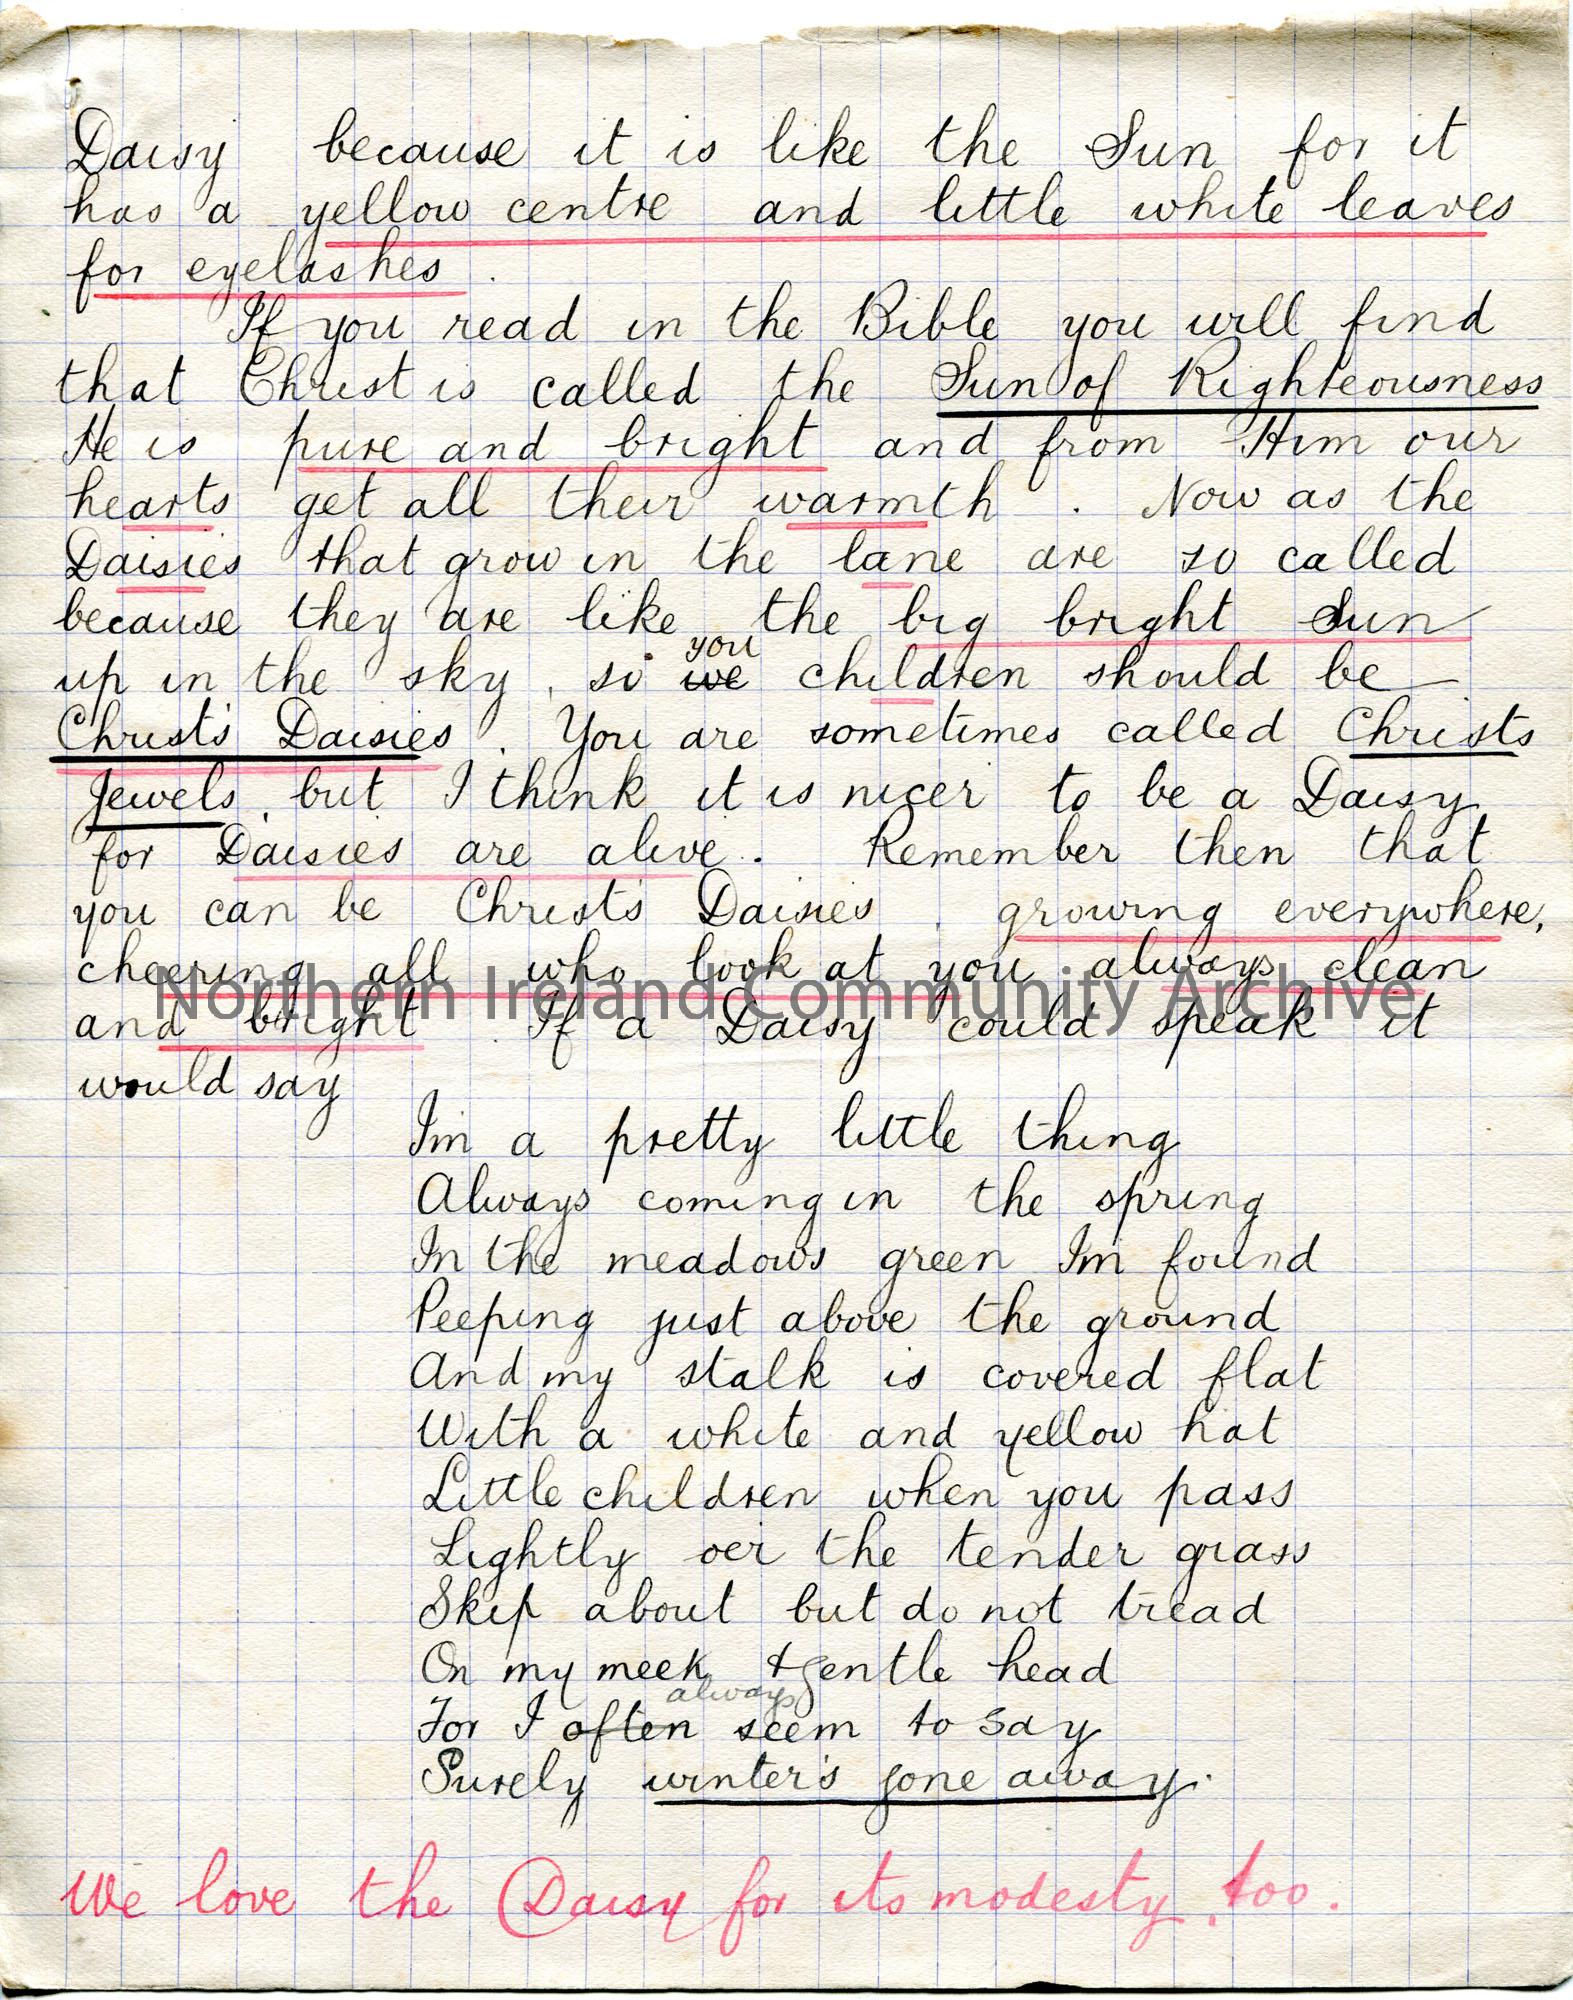 Daisy because it is like the Sun for it
has a yellow centre and little white leaves
for eyelashes .
If you read in the Bible you will find
that Christ is called the Sun of Righteousness
He is pure and bright and from Him our
hearts get all their warmth . Now as the
Daisies that grow in the lane are so called
because they are like the big bright Sun
you
up in the sky , so we children should be
Christ's Daisies . You are sometimes called Christs
Jewels , but I think it is nicer to be a Daisy
for Daisies are alive . Remember then that
you can be Christ's Daisies , growing everywhere,
cheering all who look at you always clean
Northern Ireland Community Archive
and bright . If a Daisy could speak it
would say
I'm a pretty little thing
Always coming in the spring
In the meadows green I'm found
Peeping just above the ground
And my stalk is covered flat
With a white and yellow hat
Little children when you pass
Lightly oer the tender grass
Skip about but do not tread
On my meek & gentle head
always
For I often seem to say
Surely winter's gone away.
We love the Daisy for its modesty, too.